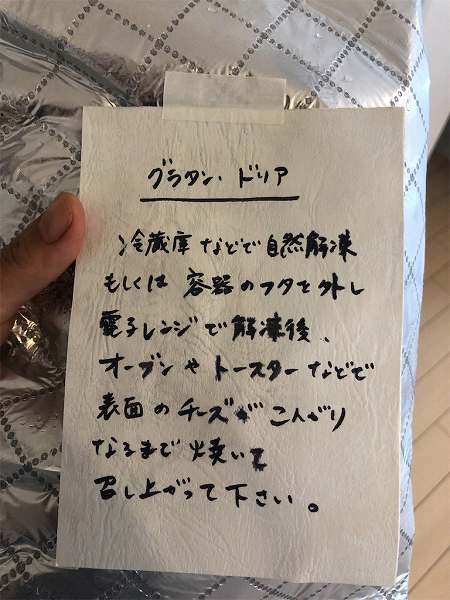 グラタン・ドリア
冷蔵庫などで自然解凍
もしくは 容器のフタを外し
電子レンジで解凍後、
オーブンやトースターなどで
表面のチーズがこんがり
なるまで焼いて
召し上がって下さい。